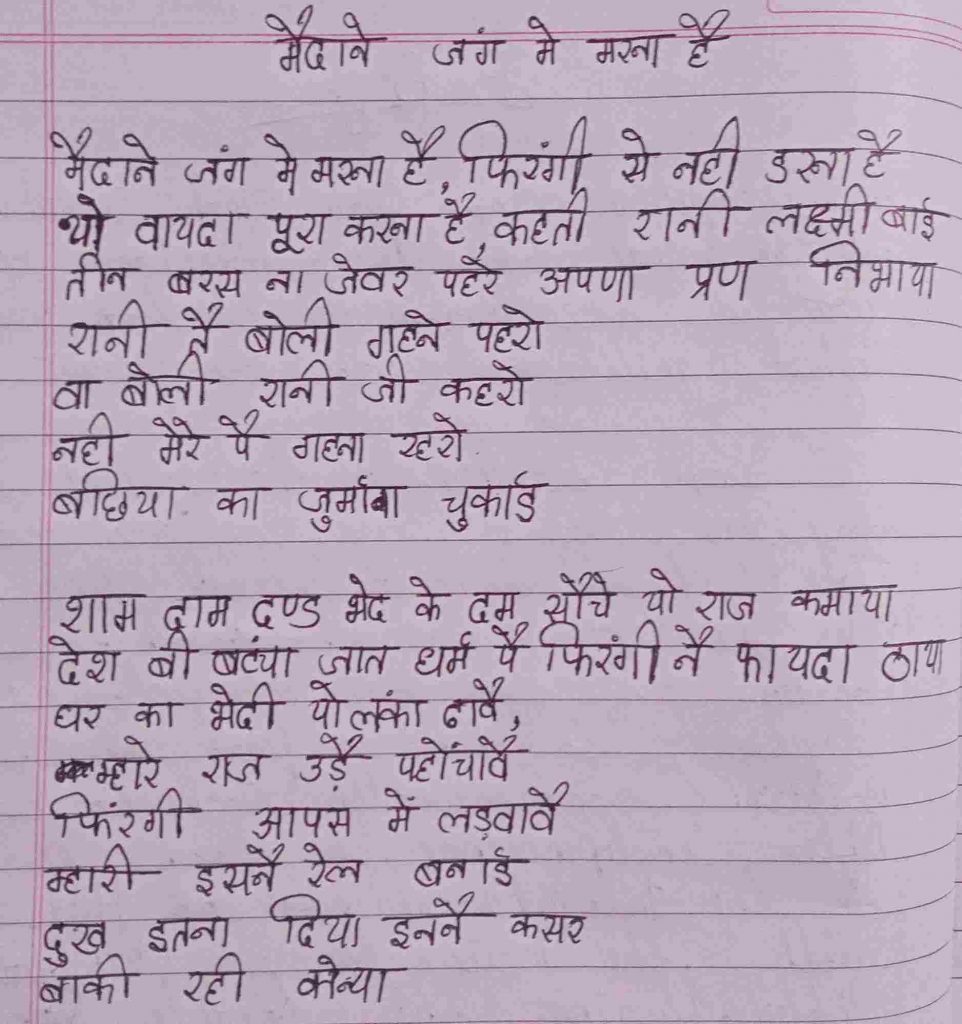 मैदाने जंग मे मरना है
मैदाने जंग मे मरना है, फिरंगी से नही डरना है
यो वायदा पूरा करना है, कहती रानी लक्ष्मी बाई
तीन बरस ना जेवर पहरे अपणा प्रण निभाया
रानी नै बोली गहने पहरो
वा बोली रानी जी कहरो
नही मेरे पै गहना रहरो
बछिया का जुर्माना चुकाई
शाम दाम दण्ड भेद के दम सौंचे यो राज कमाया
देश बी बटंया जात धर्म पै फिरंगी नै फायदा ठाया
घर का भेदी यो लंका ढावै,
म्हारे राज उड़ै पहोंचावै
फिरंगी आपस में लड़वावै
म्हारी इसनै रेल बनाई
दुख इतना दिया इननै कसर
बाकी रही कोन्या